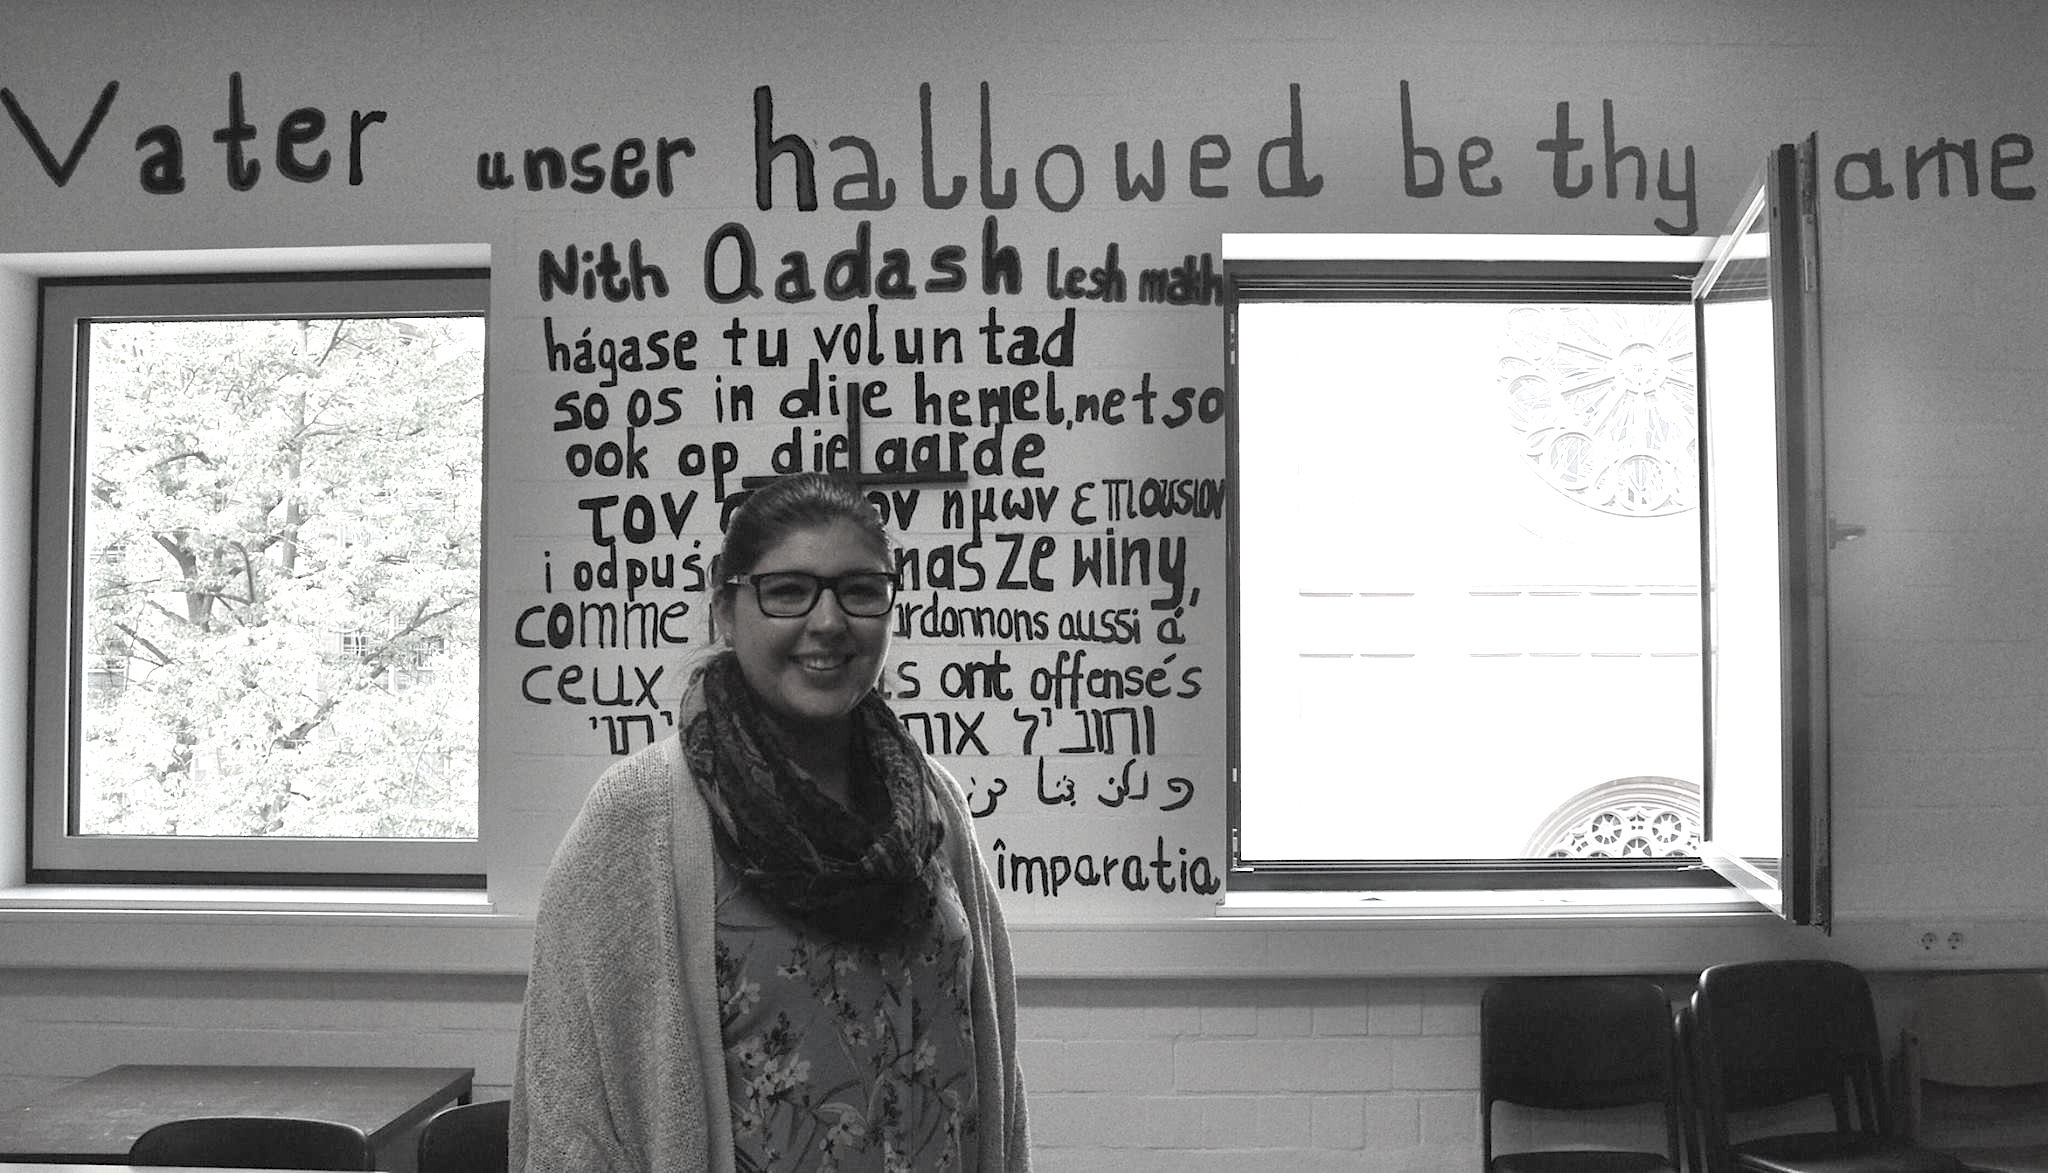 Vater unser hallowed be thy ame
Nith Qadash lesh makh
hágase tu voluntad
so os in die hemel, net so
ook op die aarde
τον ημων επιουσιον
i odpuś nasze winy,
comme ardonnons aussi á
ceux s ont offensés
ותוביל אות
و لكن بنا من
împaratia